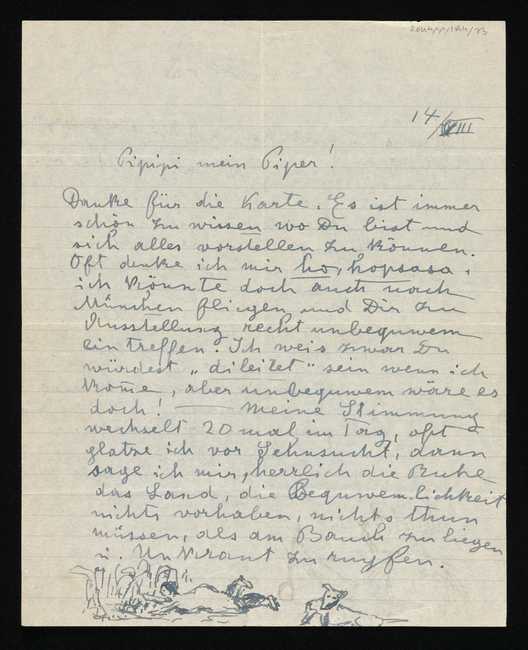 14/VIII
Pipipi mein Piper!
Danke für die Karte. Es ist immer
schön zu wissen wo Du bist und
sich alles vorstellen zu können.
Oft denke ich mir ho, hopsasa,
ich könnte doch auch nach
München fliegen und Dir zu
Ausstellung recht unbequwem
eintreffen. Ich weis zwar Du
würdest „dileitet" sein wenn ich
kom̄e, aber unbequwem wäre es
doch! — Meine Stimmung
wechselt 20 mal im Tag, oft
glotze ich vor Sehnsucht, dann
sage ich mir, herrlich die Ruhe
das Land, die Bequwemlichkeit
nichts vorhaben, nichts thun
müssen, als am Bauch zu liegen
u. Unkraut zu rupfen.